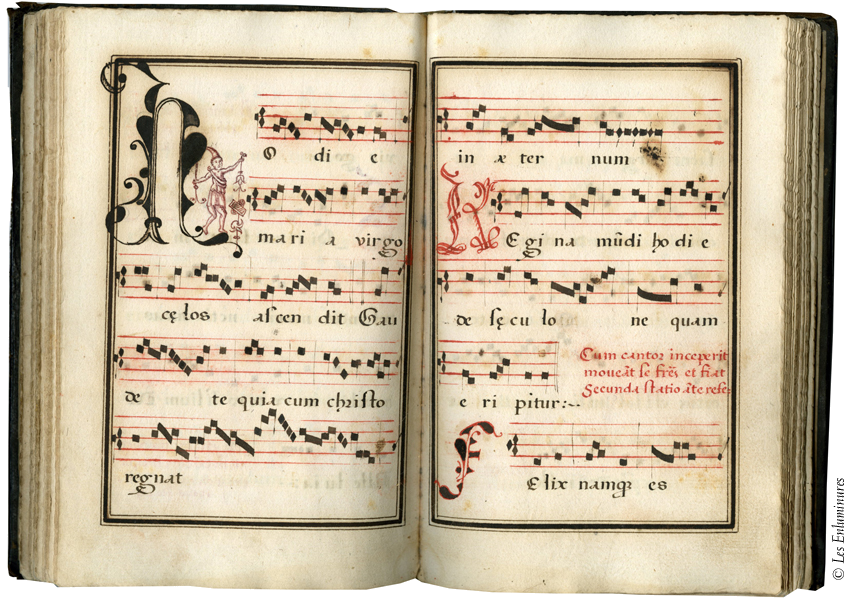 H
O di e
mari a virgo
cęlos ascen dit Gau
de te quia cum christo
regnat
in æter num
R Egi na mūdi ho di e
de sęcu lo ne quam
e ri pitur:~
Cum cantor inceperit
moveāt se frēs et fiat
Secunda statio āte
F Elix namqȝ es
© Les Enluminures